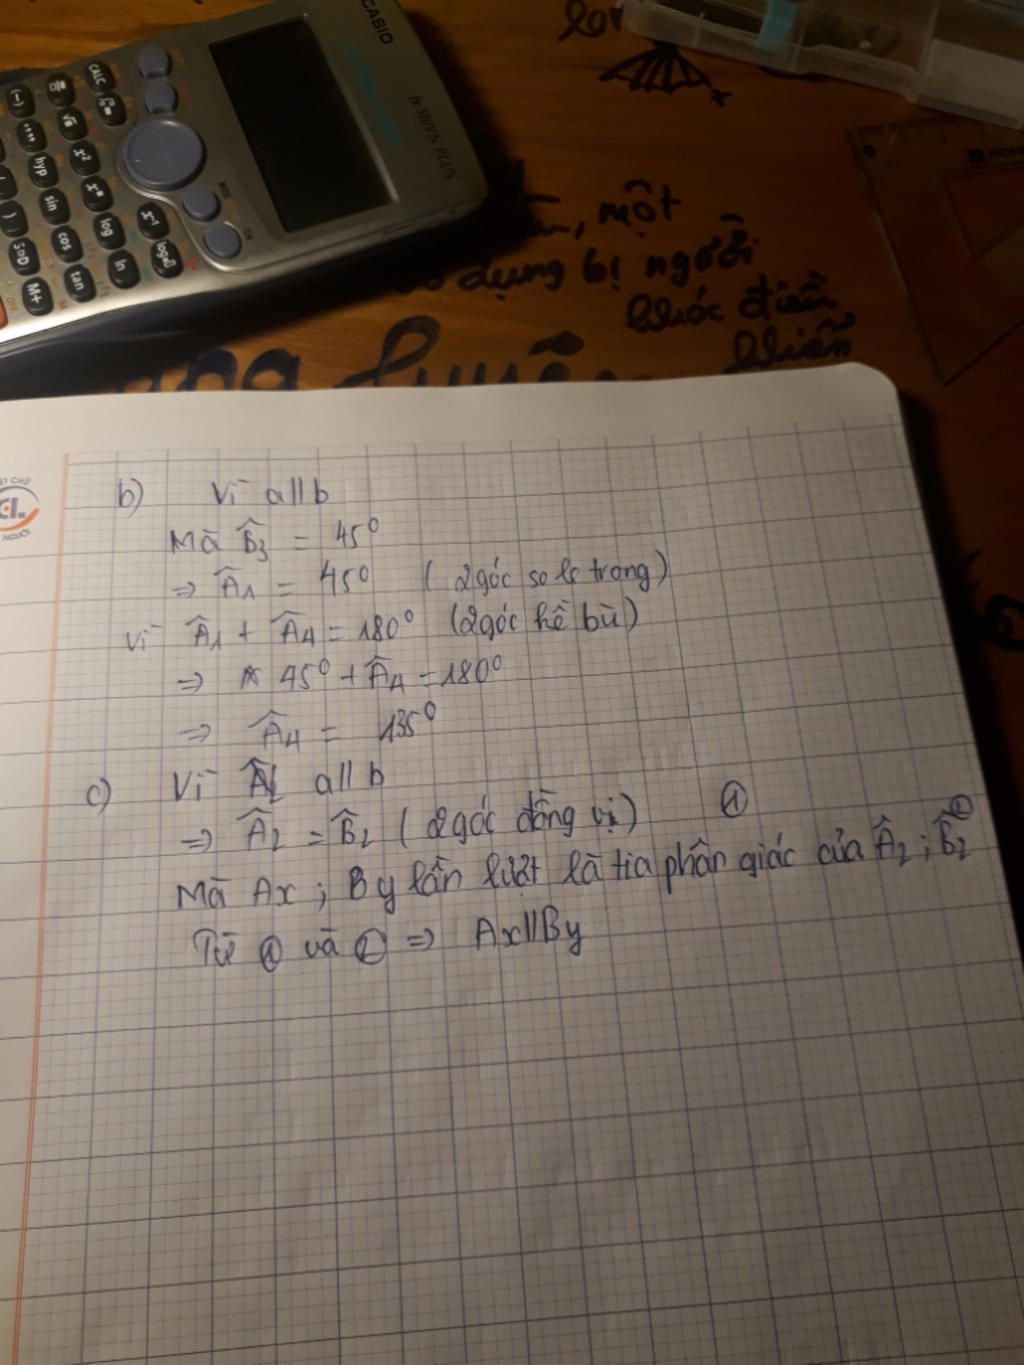 CASIO
fx-570VN PLUS
CALC
hyp
sin
cos
tan
log
ln
x²
x⁻¹
S⇔D
M+
ON
HON
một
dụng bị người
khác điều
khiển
b) Vì a // b
Mà B̂₃ = 45°
⇒ Â₁ = 45° (2 góc so le trong)
Vì Â₁ + Â₄ = 180° (2 góc kề bù)
⇒ 45° + Â₄ = 180°
⇒ Â₄ = 135°
c) Vì a // b
⇒ Â₂ = B̂₂ (2 góc đồng vị) ①
Mà Ax ; By lần lượt là tia phân giác của Â₂ ; B̂₂ ②
Từ ① và ② ⇒ Ax // By
NGƯỜI